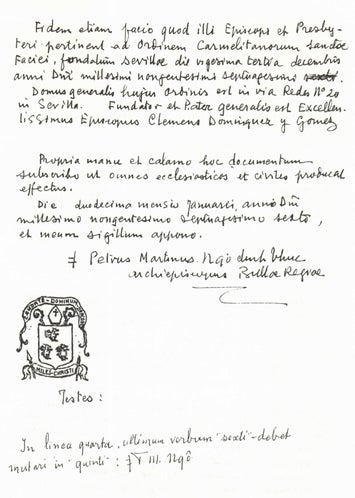 Fidem etiam facio quod illi Episcopi et Presby-
teri pertinent ad Ordinem Carmelitanorum Sanctae
Faciei, fundatum Sevillae die vigesima tertia decembris
anni Dñi millesimi nongentesimi septuagesimi sexti.
Domus generalis hujus Ordinis est in via Redes Nº 20
in Sevilla. Fundator et Pater generalis est Excellen-
tissimus Episcopus Clemens Dominguez y Gomez
Propria manu et calamo hoc documentum
subscribo ut omnes ecclesiasticos et civiles producat
effectus.
Die duodecima mensis Januarii, anno Dñi
millesimo nongentesimo septuagesimo sexto,
et meum sigillum appono.
+ Petrus Martinus Ngô dinh Thuc
archiepiscopus Bullae Regiae
MILES CHRISTI
Testes:
In linea quarta, ultimum verbum "sexti" debet
mutari in "quinti": + P. M. Ngô